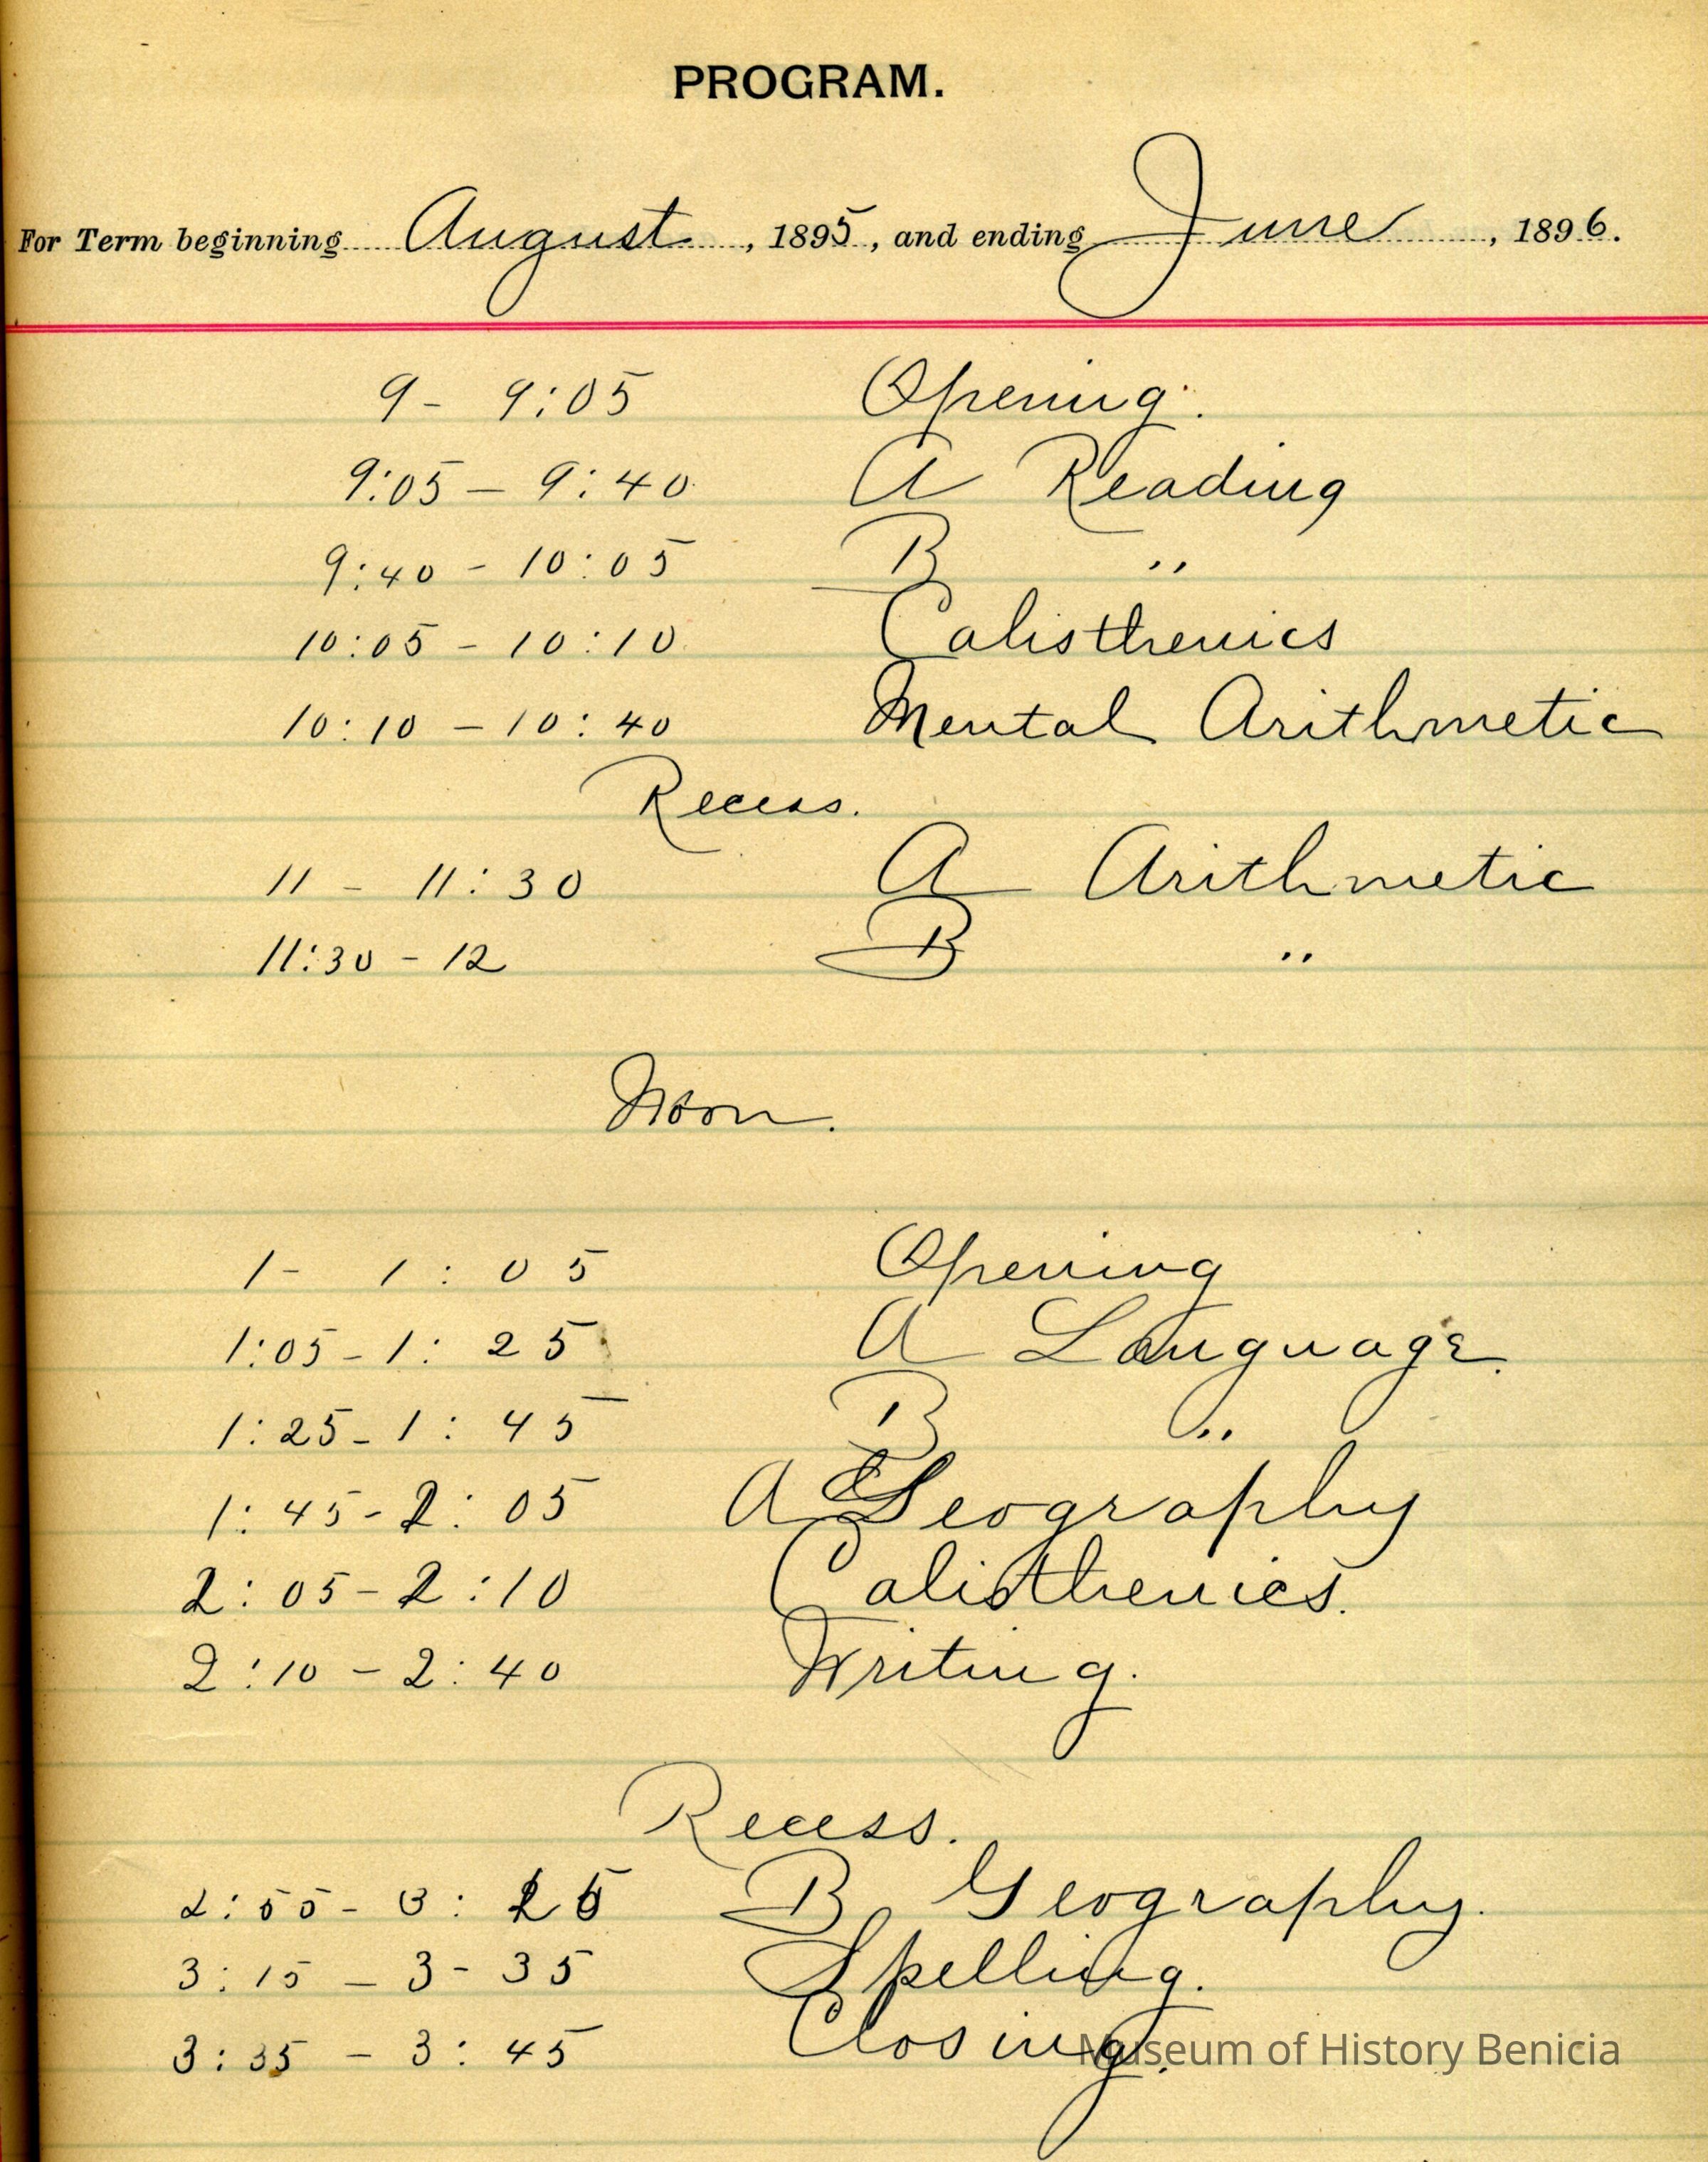 PROGRAM.
For Term beginning August, 1895, and ending June, 1896.
9 - 9:05 Opening.
9:05 - 9:40 A Reading
9:40 - 10:05 B "
10:05 - 10:10 Calisthenics
10:10 - 10:40 Mental Arithmetic
Recess.
11 - 11:30 A Arithmetic
11:30 - 12 B "
Noon.
1 - 1:05 Opening
1:05 - 1:25 A Language.
1:25 - 1:45 B "
1:45 - 2:05 A Geography
2:05 - 2:10 Calisthenics.
2:10 - 2:40 Writing.
Recess.
2:55 - 3: B Geography.
3:15 - 3-35 Spelling.
3:35 - 3:45 Closing.
Museum of History Benicia